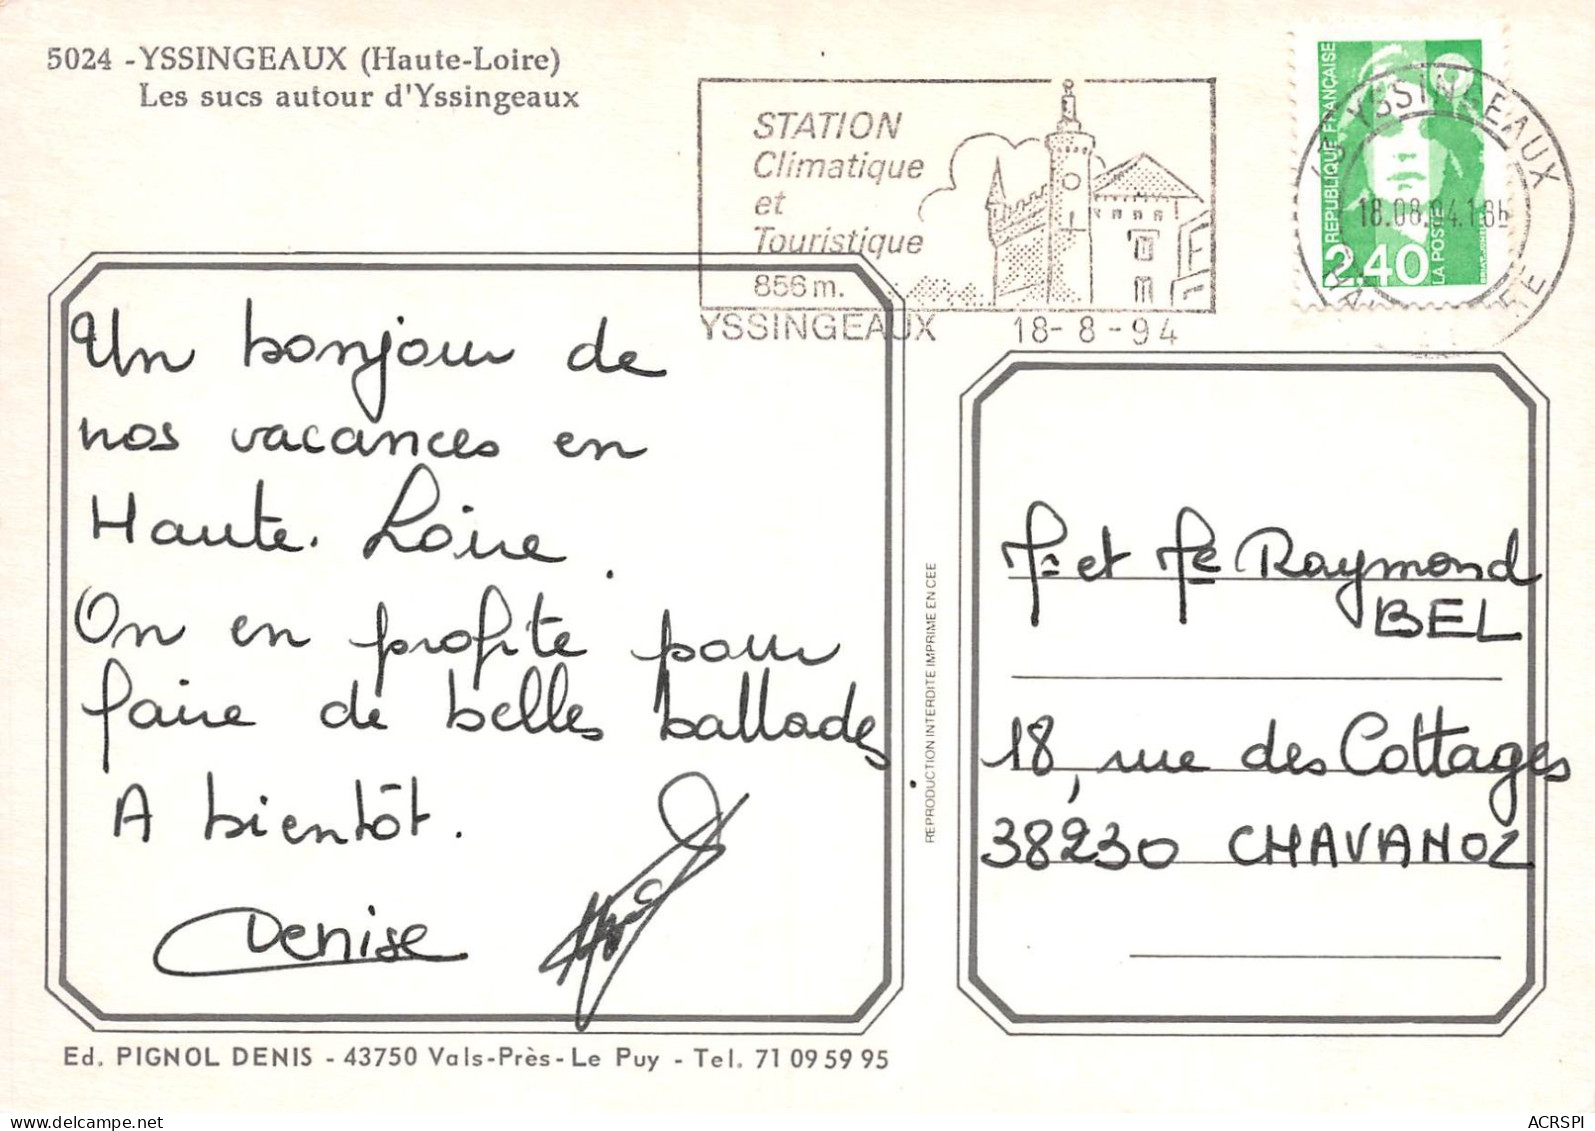 5024 - YSSINGEAUX (Haute-Loire)
Les sucs autour d'Yssingeaux
STATION
Climatique
et
Touristique
856 m.
YSSINGEAUX 18-8-94
REPUBLIQUE FRANÇAISE
LA POSTE
2,40
43 YSSINGEAUX
18.08.94.18h
Un bonjour de
nos vacances en
Haute-Loire.
On en profite pour
faire de belles ballades
A bientôt.
Denise
REPRODUCTION INTERDITE IMPRIME EN CEE
Mr et Me Raymond
BEL
18, rue des Cottages
38230 CHAVANOZ
Ed. PIGNOL DENIS - 43750 Vals-Près-Le Puy - Tel. 71 09 59 95
ACRSPI